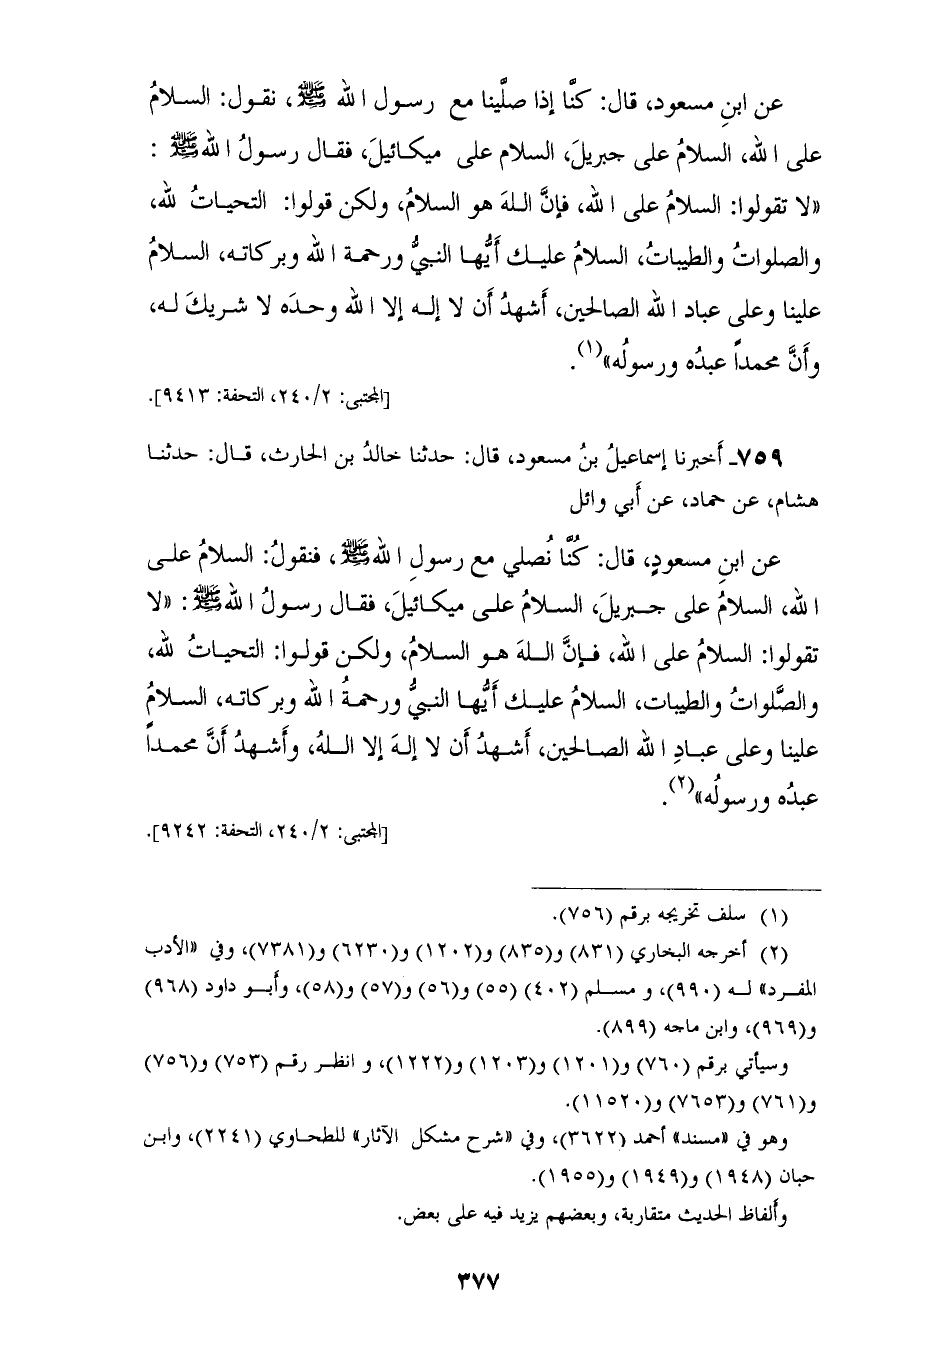 عن ابنِ مسعود، قال: كنَّا إذا صلَّينا مع رسول الله ﷺ، نقول: السلامُ
على الله، السلامُ على جبريلَ، السلام على ميكائيلَ، فقال رسولُ الله ﷺ :
«لا تقولوا: السلامُ على الله، فإنَّ اللهَ هو السلامُ، ولكن قولوا: التحياتُ لله،
والصلواتُ والطيباتُ، السلامُ عليك أيُّها النبيُّ ورحمة الله وبركاته، السلامُ
علينا وعلى عباد الله الصالحين، أشهدُ أن لا إله إلا الله وحدَه لا شريكَ له،
وأنَّ محمداً عبدُه ورسولُه»(١).
[المجتبى: ٢٤٠/٢، التحفة: ٩٤١٣].
٧٥٩ـ أخبرنا إسماعيلُ بنُ مسعود، قال: حدثنا خالدُ بن الحارث، قال: حدثنا
هشام، عن حماد، عن أبي وائل
عن ابنِ مسعودٍ، قال: كُنَّا نُصلي مع رسولِ الله ﷺ، فنقولُ: السلامُ على
الله، السلامُ على جبريلَ، السلامُ على ميكائيلَ، فقال رسولُ الله ﷺ: «لا
تقولوا: السلامُ على الله، فإنَّ اللهَ هو السلامُ، ولكن قولوا: التحياتُ لله،
والصَّلواتُ والطيبات، السلامُ عليك أيُّها النبيُّ ورحمةُ الله وبركاته، السلامُ
علينا وعلى عبادِ الله الصالحين، أشهدُ أن لا إلهَ إلا اللهُ، وأشهدُ أنَّ محمداً
عبدُه ورسولُه»(٢).
[المجتبى: ٢٤٠/٢، التحفة: ٩٢٤٢].
(١) سلف تخريجه برقم (٧٥٦).
(٢) أخرجه البخاري (٨٣١) و(٨٣٥) و(١٢٠٢) و(٦٢٣٠) و(٧٣٨١)، وفي «الأدب
المفرد» له (٩٩٠)، و مسلم (٤٠٢) (٥٥) و(٥٦) و(٥٧) و(٥٨)، وأبو داود (٩٦٨)
و(٩٦٩)، وابن ماجه (٨٩٩).
وسيأتي برقم (٧٦٠) و(١٢٠١) و(١٢٠٣) و(١٢٢٢)، و انظر رقم (٧٥٣) و(٧٥٦)
و(٧٦١) و(٧٦٥٣) و(١١٥٢٠).
وهو في «مسند» أحمد (٣٦٢٢)، وفي «شرح مشكل الآثار» للطحاوي (٢٢٤١)، وابن
حبان (١٩٤٨) و(١٩٤٩) و(١٩٥٥).
وألفاظ الحديث متقاربة، وبعضهم يزيد فيه على بعض.
٣٧٧